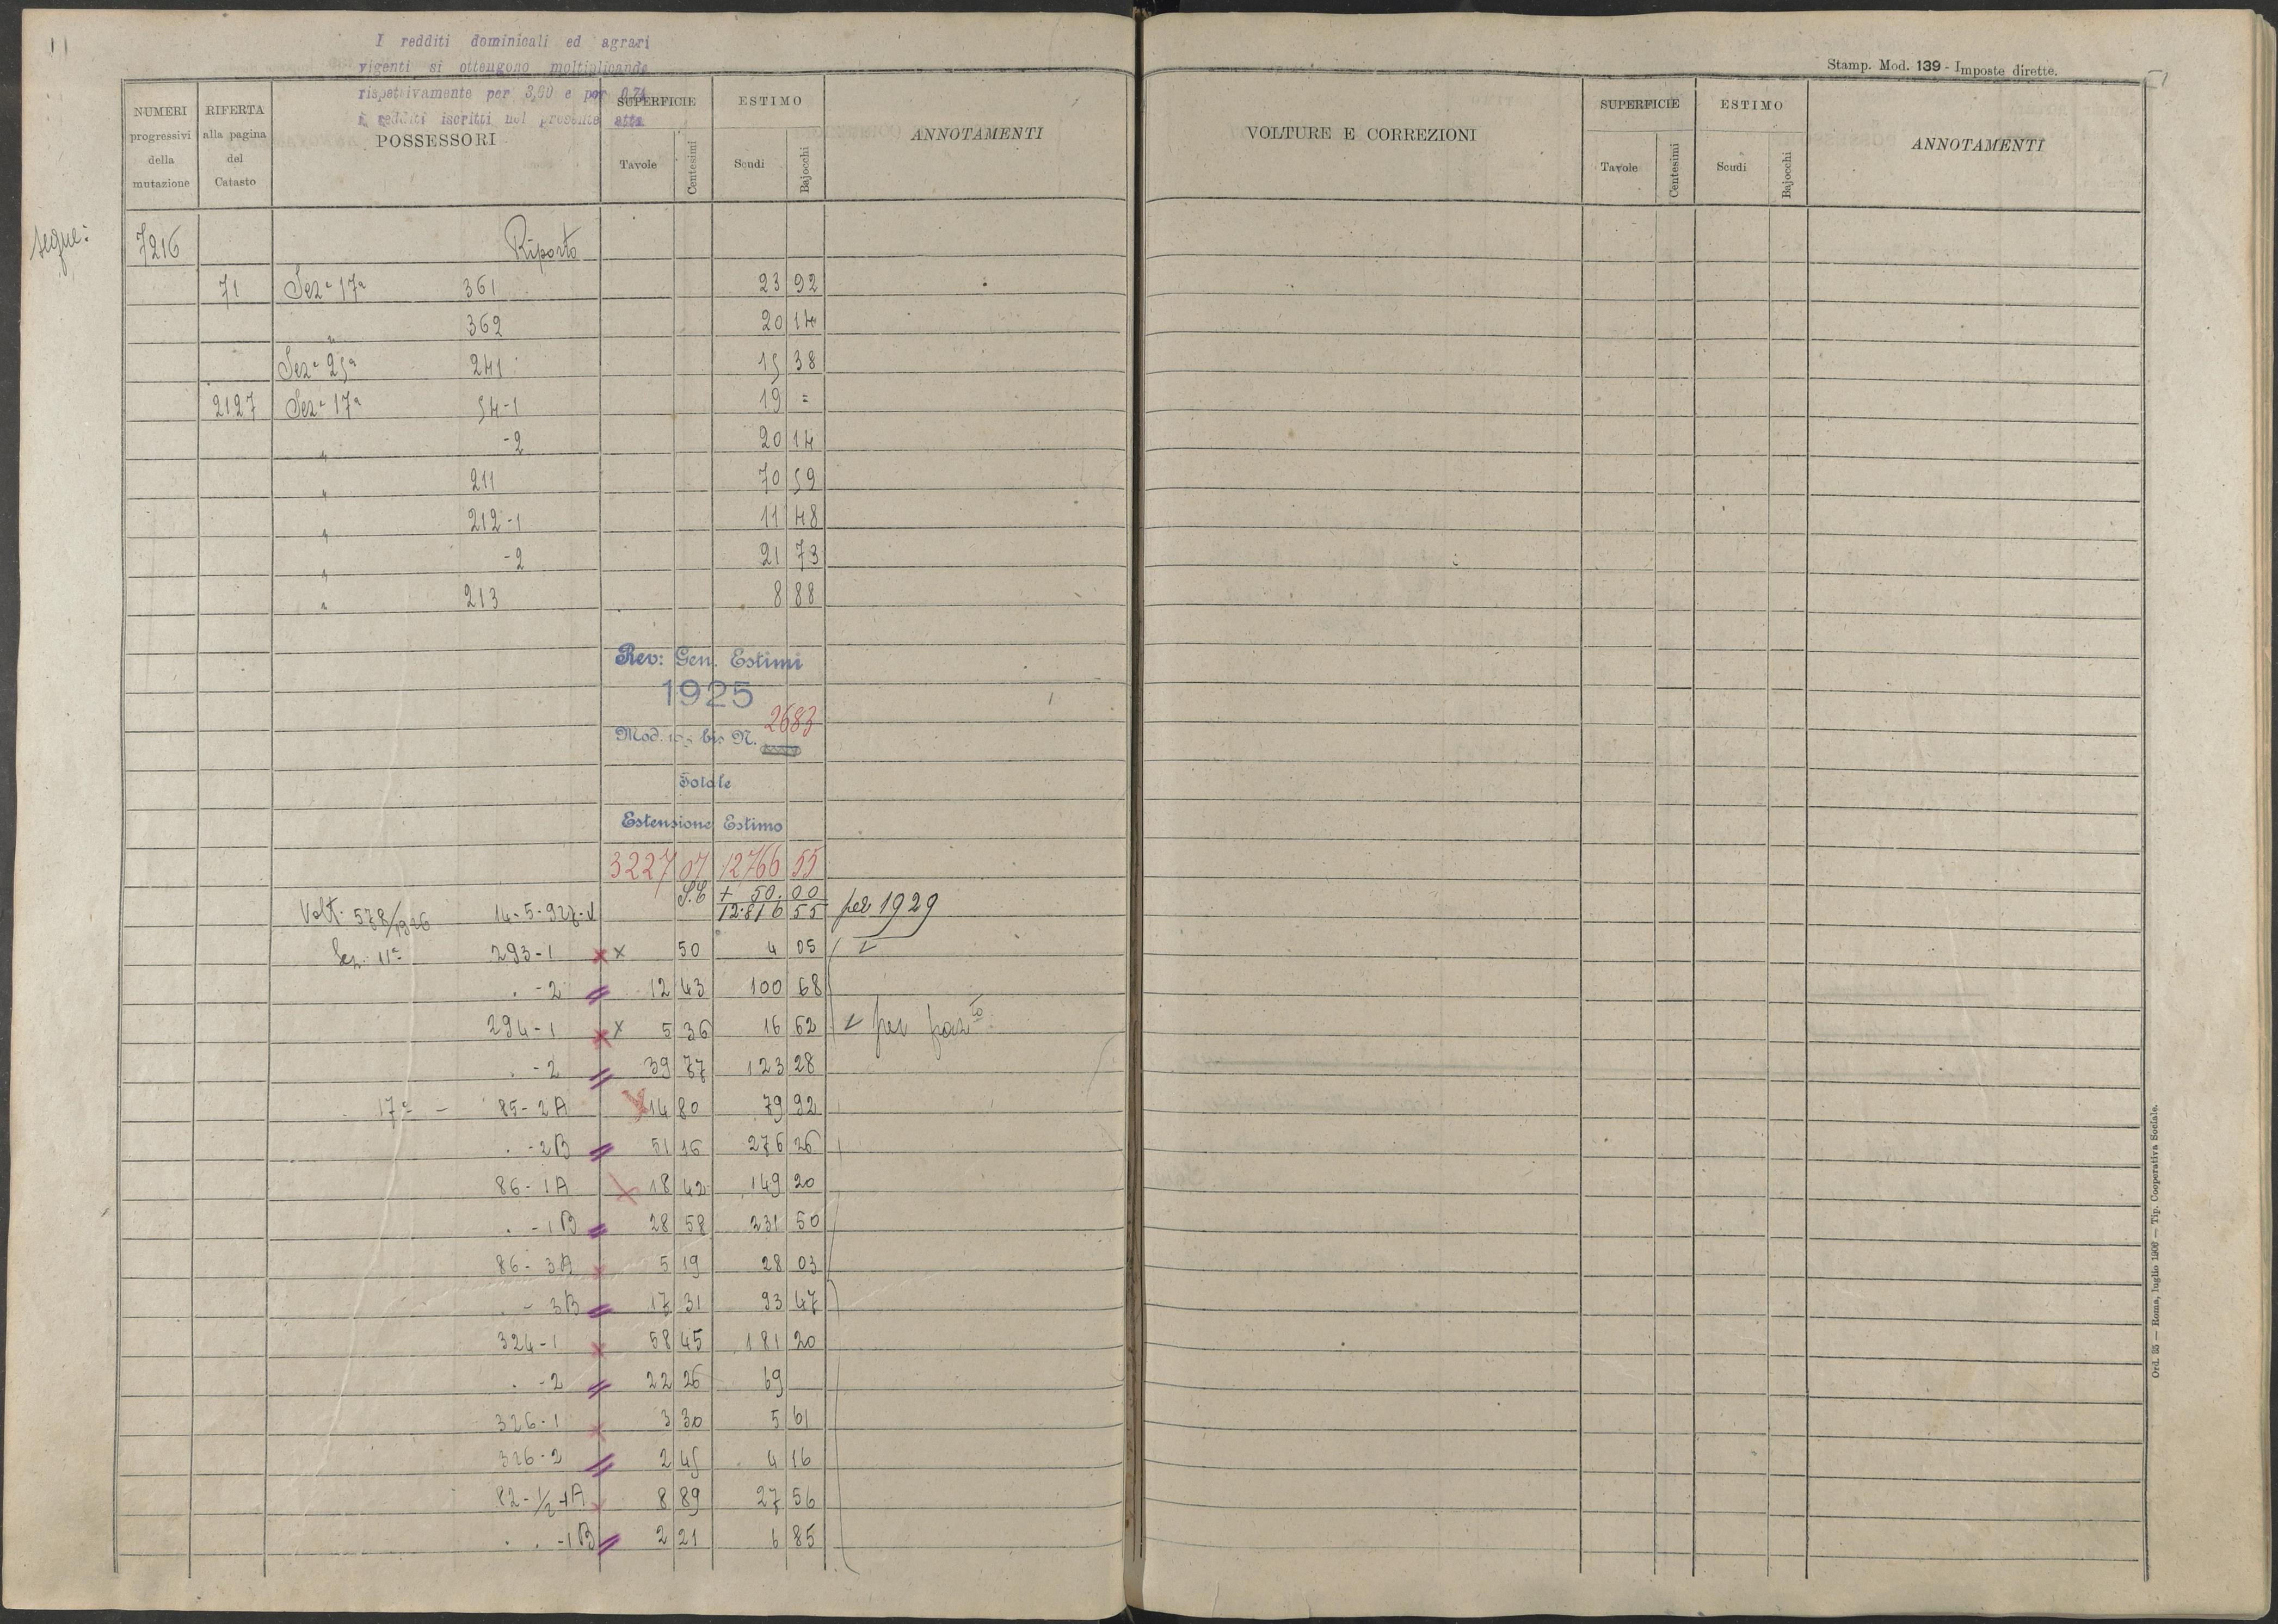 I redditi dominicali ed agrari
vigenti si ottengono moltiplicando
rispettivamente per 3,60 e per 0,74
i redditi iscritti nel presente atto
Stamp. Mod. 139 - Imposte dirette.
NUMERI progressivi della mutazione | RIFERTA alla pagina del Catasto | POSSESSORI | SUPERFICIE Tavole Centesimi | ESTIMO Scudi Bajocchi | ANNOTAMENTI
VOLTURE E CORREZIONI | SUPERFICIE Tavole Centesimi | ESTIMO Scudi Bajocchi | ANNOTAMENTI
segue: 7216 Riporto
71 Sez.e 17a 361 23 92
" 362 20 14
Sez.e 25a 241 15 38
2127 Sez.e 17a 54-1 19 =
" -2 20 14
" 211 70 59
" 212-1 11 48
" -2 21 73
" 213 8 88
Rev: Gen. Estimi
1925
2683
Mod. bis N.
Totale
Estensione Estimo
3227 07 12766 55
S.E + 50.00
Volt. 578/1926 14-5-927 12.816 55 per 1929
Sez. 11a 293-1 x x 50 4 05
. -2 = 12 43 100 68
294-1 x x 5 36 16 62 per fazto
. -2 = 39 77 123 28
17a - 85-2A x 14 80 79 92
. -2B = 51 16 276 26
86-1A x 18 42 149 20
. -1B = 28 58 231 50
86-3A x 5 19 28 03
. -3B = 17 31 93 47
324-1 x 58 45 181 20
. -2 = 22 26 69
326-1 x 3 30 5 61
326-2 = 2 45 4 16
82-1/2+A x 8 89 27 56
. . -1B = 2 21 6 85
Ord. 35 — Roma, luglio 1906 — Tip. Cooperativa Sociale.